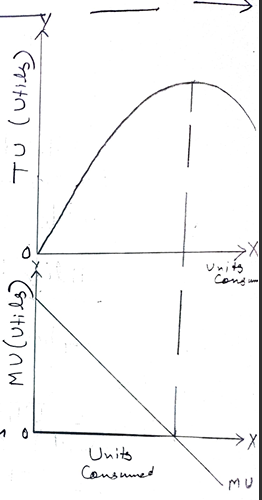 Y
TU (Utils)
0
X
Units
Consum
Y
MU (Utils)
0
X
Units
Consumed
MU